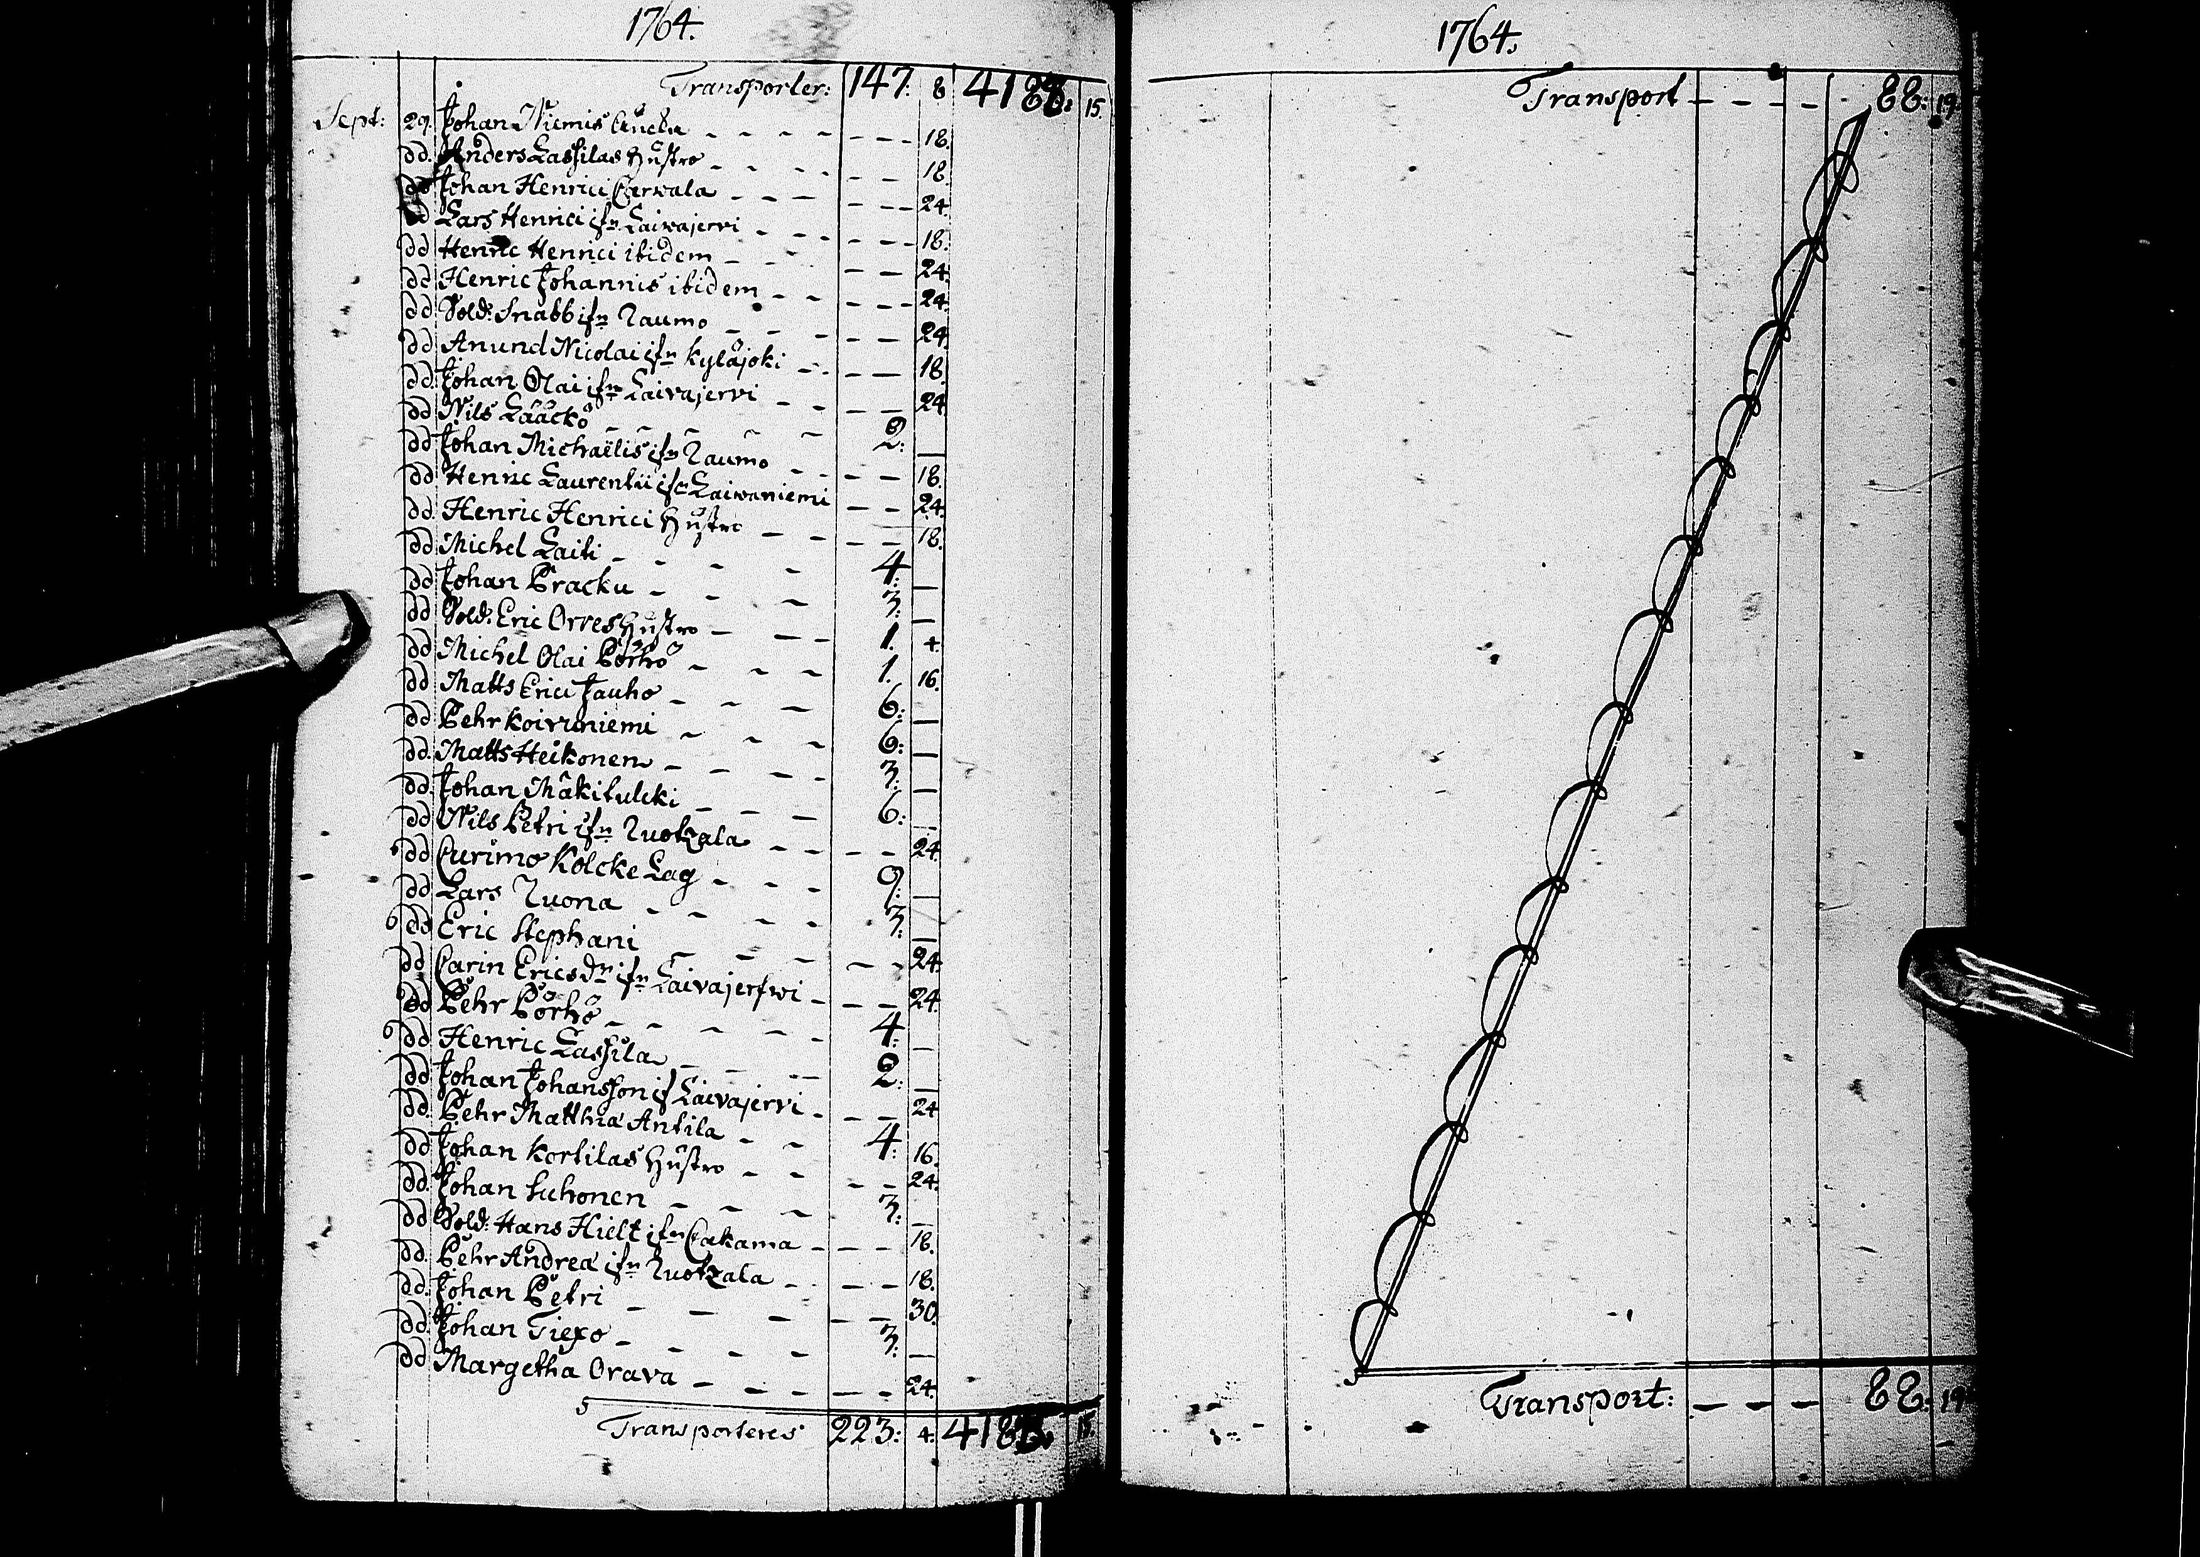 1764.
Transporter: 147: 8 4188: 15.
Sept: 29. Johan Niemis Encka - - - - - - - 18.
dd. Anders Lassilas Hustro - - - - - - 18.
dd Johan Henrici Carwala - - - - - - 24.
dd Lars Henrici ifn Laiwajervi - - - - - - 18.
dd Henric Henrici ibidem - - - - - - 24.
dd Henric Johannis ibidem - - - - - 24.
dd Sold: Snabb ifn Raumo - - - - - - 24.
dd Anund Nicolai ifn Kyläjoki - - - - 18.
dd. Johan Olai ifn Laivajervi - - - - 24
dd Nils Lääckö - - - - - 2: —
dd Johan Michaëlis ifn Raumo - - - - 18.
dd Henric Laurentii ifn Laiwaniemi - - 24.
dd. Henric Henrici Hustro - - - - 18.
dd Michel Laiti - - - - 4: —
dd Johan Pracku - - - - 3: —
dd Sold: Eric Orres Hustro - - - 1. 4.
dd Michel Olai Pörhö - - - 1. 16.
dd Matts Erici Jauho - - - - 6: —
dd Pehr Koivuniemi - - - 6: —
dd. Matts Heikonen - - - - 3. —
dd. Johan Mäkitulcki - - - - 6: —
dd Nils Petri ifn Ruotzala - - - - 24.
dd Curimo Kolcke Lag - - - - 9: —
dd Lars Ruona - - - - - 3. —
dd Eric Stephani - - - - - 24.
dd Carin Ericsdr ifn Laivajerfwi - - - 24.
dd Pehr Pörhö - - - - - 4: —
dd Henric Lassila - - - - 2: —
dd Johan Johansson if Laivajervi - - - 24
dd. Pehr Matthiæ Antila - - 4. 16.
dd Johan Kortilas Hustro - - - - 24.
dd. Johan Suhonen - - - - 3: —
dd Sold: Hans Hielt ifn Cakama - - - 18.
dd. Pehr Andreæ ifn Ruotzala - - - 18.
dd. Johan Petri - - - - - 30.
dd. Johan Tiexo - - - - 3: —
dd Margetha Orava - - - - - - 24.
Transporteres 223: 4. 15.
1764.
Transport - - - - 88: 19.
Transport: - - - - 88: 19